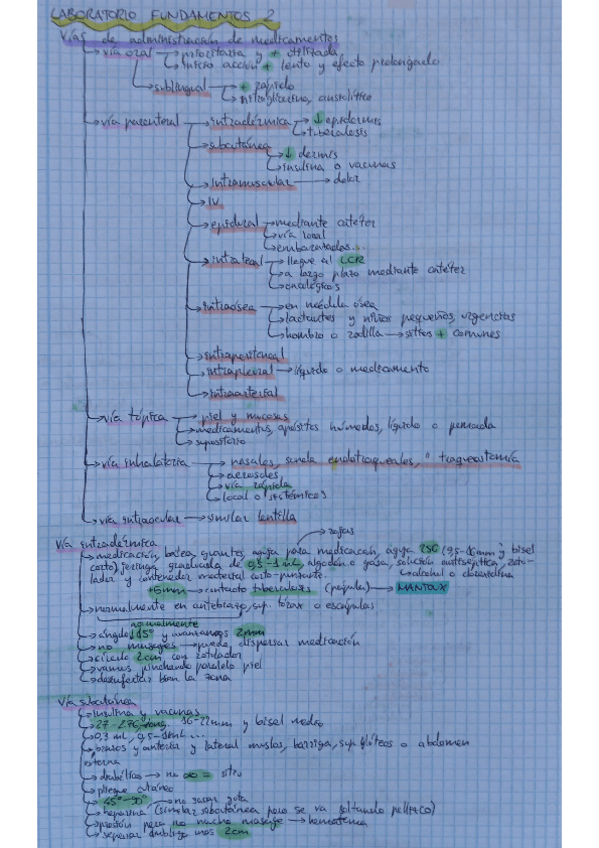 LABORATORIO FUNDAMENTOS 2
Vías de administración de medicamentos
→vía oral → prioritaria y + utilizada
→inicio acción + lento y efecto prolongado
→sublingual → + rápido
→nitroglicerina, ansiolítico
→vía parenteral → intradérmica → ↓ epidermis
→tuberculosis
→subcutánea
→↓ dermis
→insulina o vacunas
→intramuscular → dolor
→IV
→epidural → mediante catéter
→vía local
→embarazadas...
→intratecal → llegue al LCR
→a largo plazo mediante catéter
→oncológicos
→intraósea → en médula ósea
→lactantes y niños pequeños, urgencias
→hombro o rodilla → sitios + comunes
→intraperitoneal
→intrapleural → líquido o medicamento
→intraarterial
→vía tópica → piel y mucosas
→medicamentos, apósitos húmedos, líquido o pomada
→supositorio
→vía inhalatoria → nasales, sonda endotraqueales, o traqueostomía
→aerosoles
→vía rápida
→local o sistémicos
→vía intraocular → similar lentilla
Vía intradérmica → rojas
→medicación, batea, guantes, aguja para medicación, aguja 25G (9,5-16mm y bisel
corto) jeringa graduada de 0,5-1 mL, algodón o gasa, solución antiséptica, rotu-
lador y contenedor material corto-punzante. →alcohol o clorhexidina
+5mm → contacto tuberculosis (pápula) → MANTOUX
→normalmente en antebrazo, sup. tórax o escápulas
normalmente
→ángulo 15° y avanzamos 2mm
→no masajes → puede dispersar medicación
→círculo 2cm con rotulador
→vamos pinchando paralelo piel
→desinfectar bien la zona
Vía subcutánea
→insulina y vacunas
→27-27G, 16-22mm y bisel medio
→0,3 mL, 0,5-1mL...
→brazos y anterior y lateral muslos, barriga, sup. glúteos o abdomen
→diabético → no = sitio
→pliegue cutáneo
→45°-90° → no sacar gota
→heparina (similar subcutánea pero se va soltando pellizco)
→presión pero no mucho masaje → hematoma
→separar ombligo unos 2cm